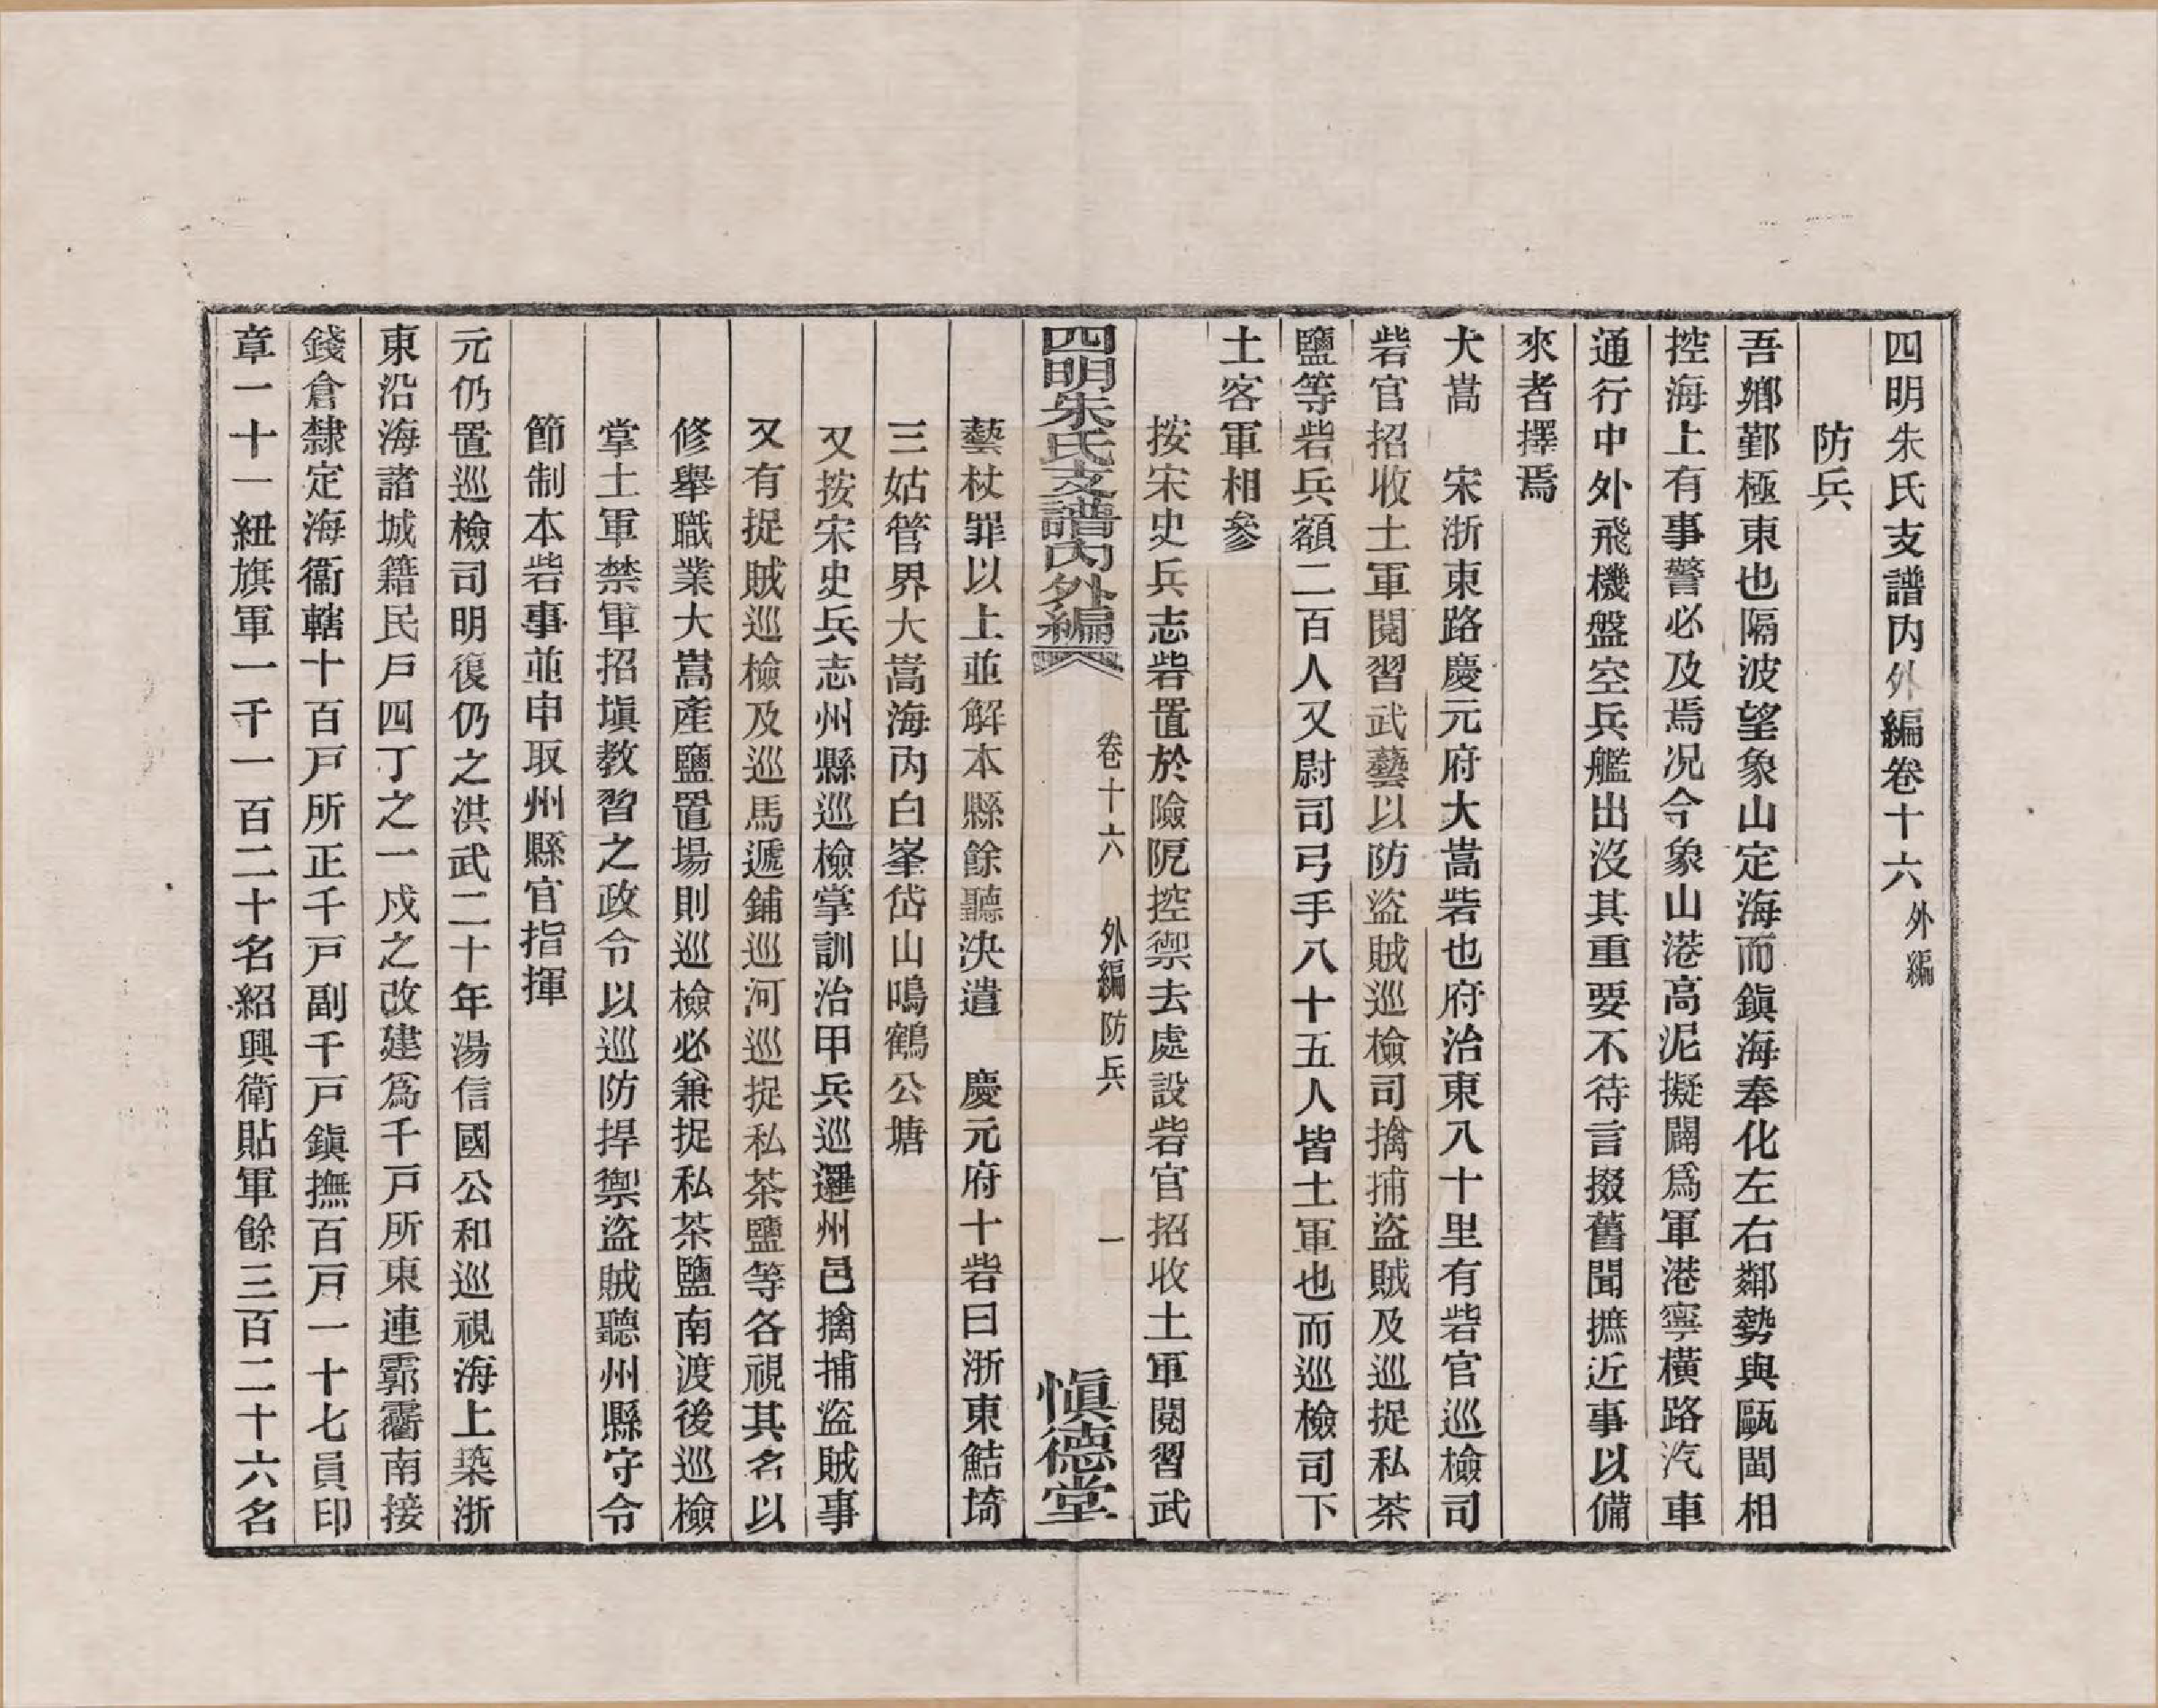 四明朱氏支譜內外編卷十六外編
防兵
吾鄉鄞極東也隔波望象山定海而鎭海奉化左右鄰勢與甌閩相
控海上有事警必及焉况今象山港高泥擬闢爲軍港寧橫路汽車
通行中外飛機盤空兵艦出沒其重要不待言掇舊聞摭近事以備
來者擇焉
大嵩　宋浙東路慶元府大嵩砦也府治東八十里有砦官巡檢司
砦官招收土軍閱習武藝以防盜賊巡檢司擒捕盜賊及巡捉私茶
鹽等砦兵額二百人又尉司弓手八十五人皆土軍也而巡檢司下
土客軍相參
按宋史兵志砦置於險阨控禦去處設砦官招收土軍閱習武
四明朱氏支譜內外編　卷十六　外編　防兵　一　愼德堂
藝杖罪以上並解本縣餘聽決遣　慶元府十砦曰浙東鮚埼
三姑管界大嵩海內白峯岱山鳴鶴公塘
又按宋史兵志州縣巡檢掌訓治甲兵巡邏州邑擒捕盜賊事
又有捉賊巡檢及巡馬遞鋪巡河巡捉私茶鹽等各視其名以
修舉職業大嵩產鹽置場則巡檢必兼捉私茶鹽南渡後巡檢
掌土軍禁軍招塡教習之政令以巡防捍禦盜賊聽州縣守令
節制本砦事並申取州縣官指揮
元仍置巡檢司明復仍之洪武二十年湯信國公和巡視海上築浙
東沿海諸城籍民戶四丁之一戍之改建爲千戶所東連霩𩇕南接
錢倉隸定海衞轄十百戶所正千戶副千戶鎭撫百戶一十七員印
章一十一紐旗軍一千一百二十名紹興衛貼軍餘三百二十六名